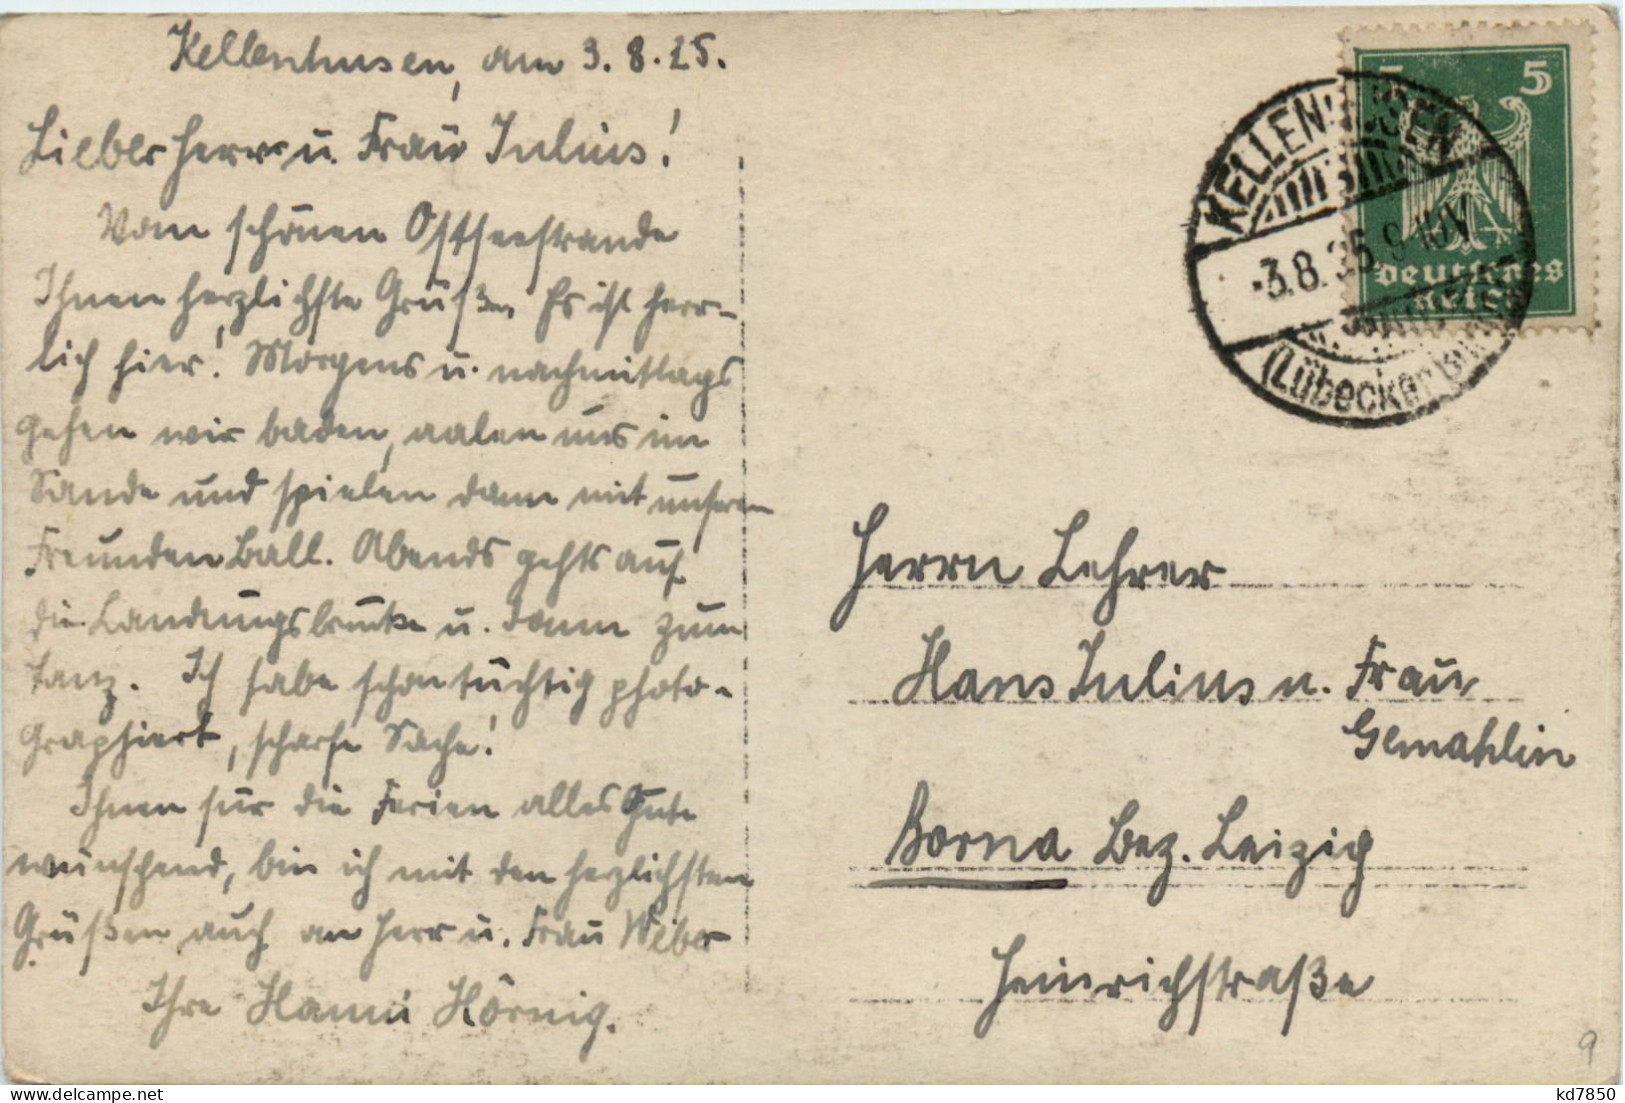 Kellenhusen, am 3.8.25.
Lieber Herr u. Frau Julius!
Vom schönen Ostseestrande
Ihnen herzlichste Grüße. Es ist herr-
lich hier! Morgens u. nachmittags
gehen wir baden, aalen uns im
Sande und spielen dann mit unseren
Freunden Ball. Abends gehts auf
die Landungsbrücke u. dann zum
Tanz. Ich habe schon tüchtig photo-
graphiert, scharfe Sache!
Ihnen für die Ferien alles Gute
wünschend, bin ich mit den herzlichsten
Grüßen auch an Herr u. Frau Weber
Ihre Hanni Hörnig.
5 5
Deutsches
Reich
KELLENHUSEN
-3.8.25 9-10V
(Lübecker Bucht)
Herrn Lehrer
Hans Julius u. Frau
Gemahlin
Borna Bez. Leizig
Heinrichstraße
9
kd7850